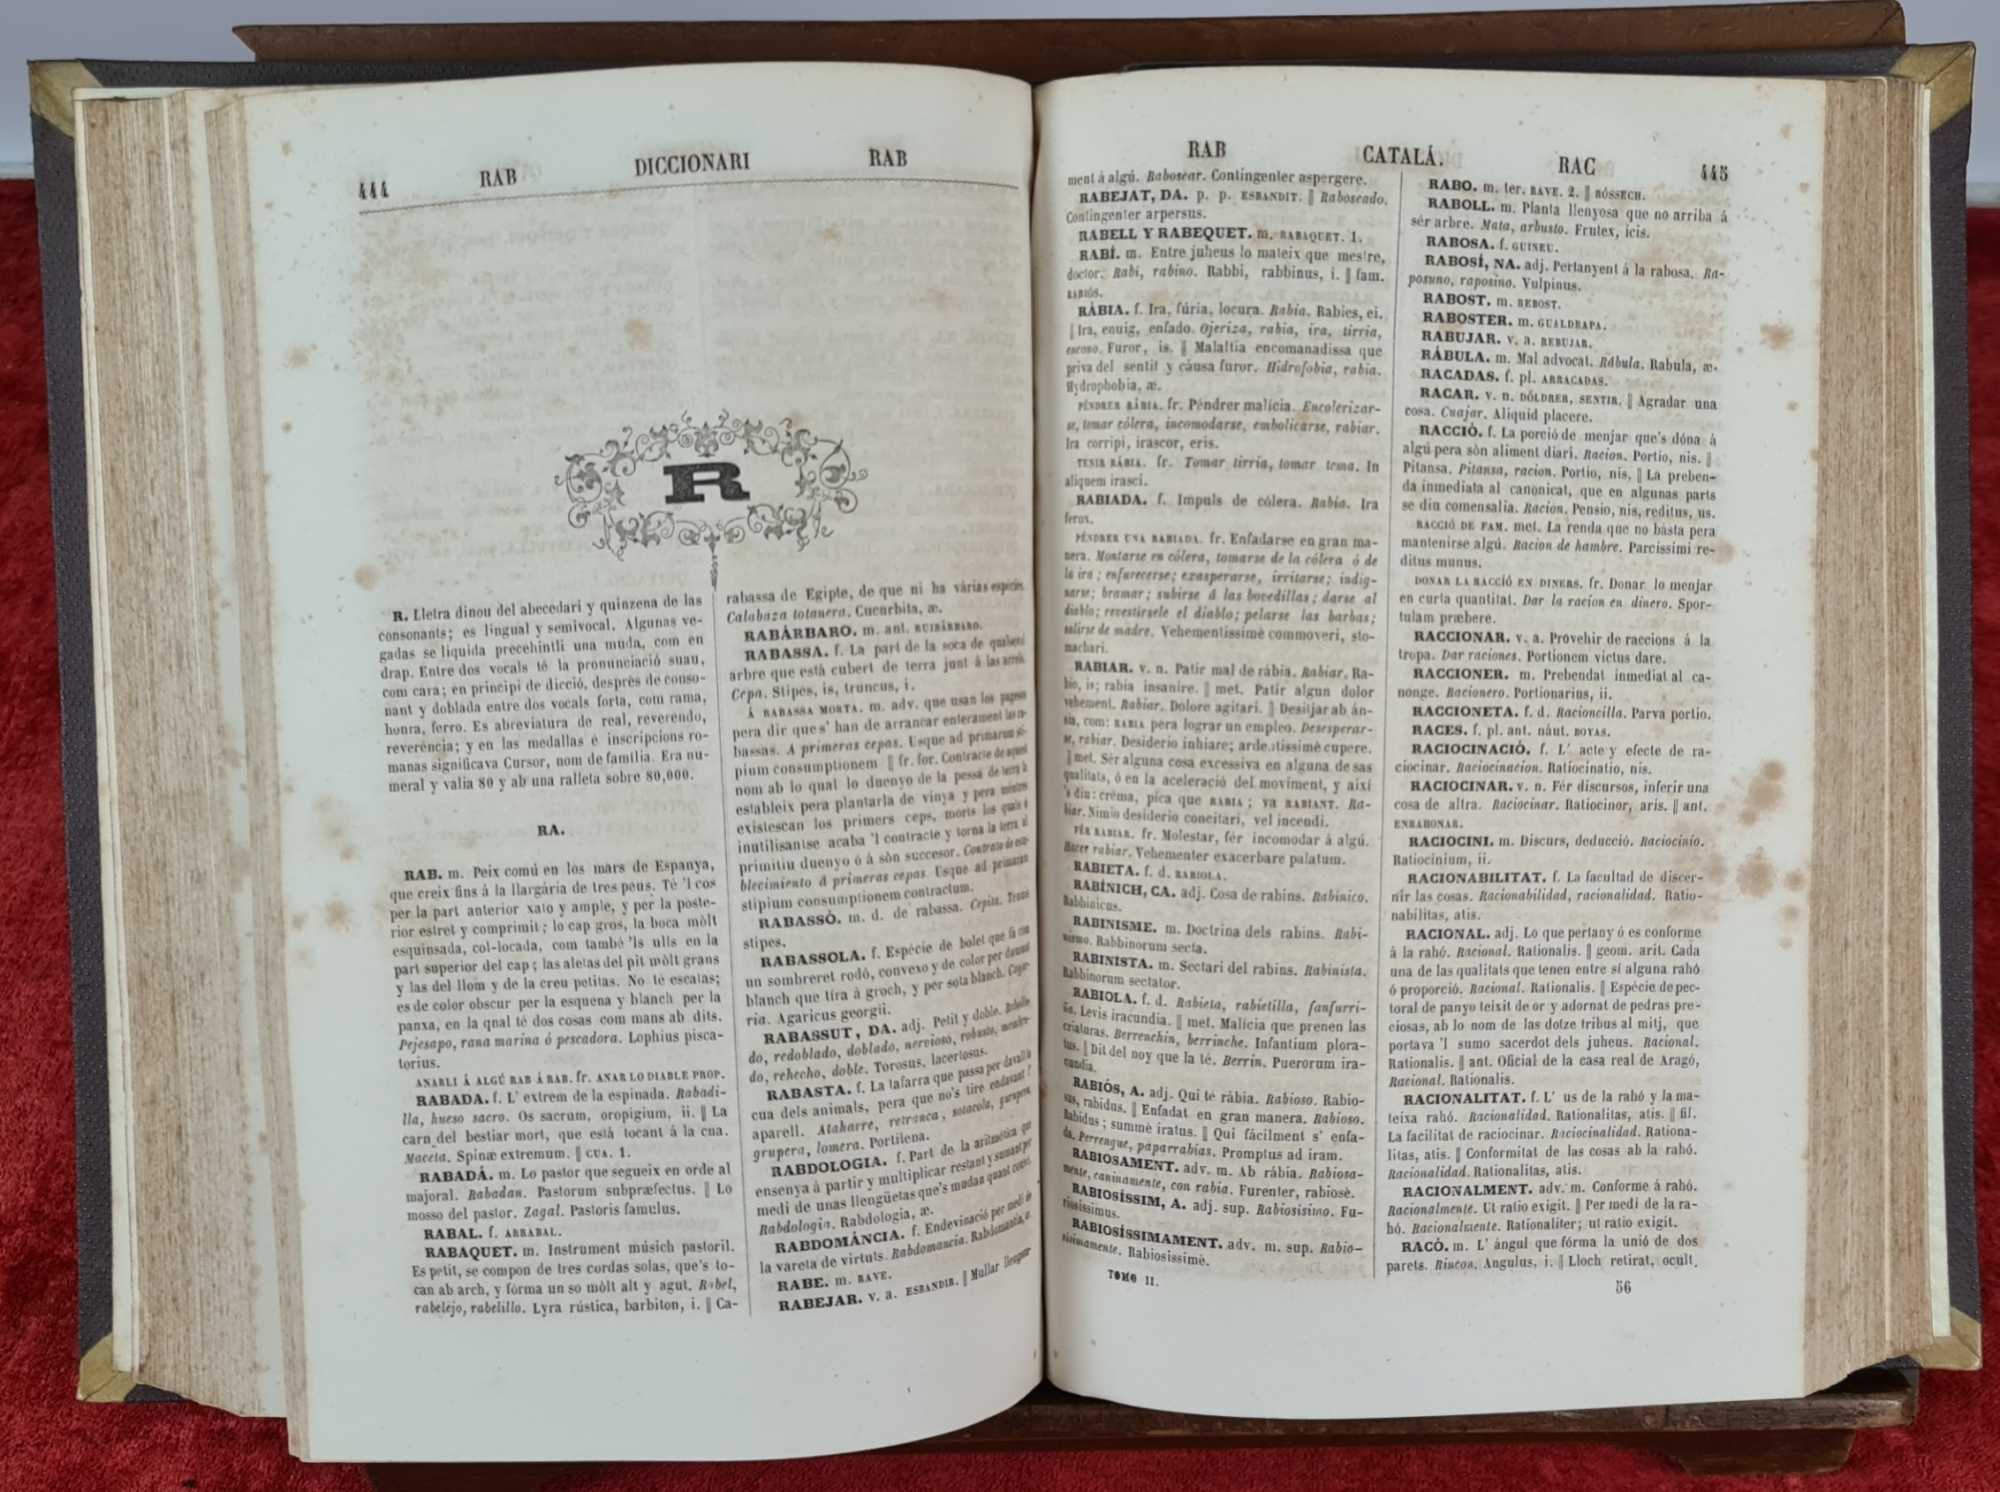 444 RAB DICCIONARI RAB
R
R. Lletra dinou del abecedari y quinzena de las
consonants; es lingual y semivocal. Algunas ve-
gadas se liquida precehintli una muda, com en
drap. Entre dos vocals té la pronunciació suau,
com cara; en principi de dicció, desprès de conso-
nant y doblada entre dos vocals forta, com rama,
honra, ferro. Es abreviatura de real, reverendo,
reverència; y en las medallas é inscripcions ro-
manas significava Cursor, nom de familia. Era nu-
meral y valia 80 y ab una ralleta sobre 80,000.
RA.
RAB. m. Peix comú en los mars de Espanya,
que creix fins á la llargária de tres peus. Té 'l cos
per la part anterior xato y ample, y per la poste-
rior estret y comprimit; lo cap gros, la boca mòlt
esquinsada, col-locada, com també 'ls ulls en la
part superior del cap; las aletas del pit mòlt grans
y las del llom y de la creu petitas. No té escatas;
es de color obscur per la esquena y blanch per la
panxa, en la qnal té dos cosas com mans ab dits.
Pejesapo, rana marina ó pescadora. Lophius pisca-
torius.
ANARLI Á ALGÚ RAB Á RAB. fr. ANAR LO DIABLE PROP.
RABADA. f. L' extrem de la espinada. Rabadi-
lla, hueso sacro. Os sacrum, oropigium, ii. ‖ La
carn del bestiar mort, que está tocant á la cua.
Maceta. Spinæ extremum. ‖ CUA. 1.
RABADÁ. m. Lo pastor que segueix en orde al
majoral. Rabadan. Pastorum subpræfectus. ‖ Lo
mosso del pastor. Zagal. Pastoris famulus.
RABAL. f. ARRABAL.
RABAQUET. m. Instrument músich pastoril.
Es petit, se compon de tres cordas solas, que's to-
can ab arch, y fórma un so mòlt alt y agut. Rabel,
rabelejo, rabelillo. Lyra rústica, barbiton, i. ‖ Ca-
rabassa de Egipte, de que ni ha várias especies.
Calabaza totanera. Cucurbita, æ.
RABÁRBARO. m. ant. RUIBÁRBARO.
RABASSA. f. La part de la soca de qualsevol
arbre que está cubert de terra junt á las arrels.
Cepa. Stipes, is, truncus, i.
Á RABASSA MORTA. m. adv. que usan los pagesos
pera dir que s' han de arrancar enterament las ra-
bassas. A primeras cepas. Usque ad primarum sti-
pium consumptionem ‖ fr. for. Contracte de aquest
nom ab lo qual lo duenyo de la pessa de terra la
estableix pera plantarla de vinya y pera mentres
existescan los primers ceps, morts los quals é
inutilisantse acaba 'l contracte y torna la terra al
primitiu duenyo ó á sòn successor. Contrato de esta-
blecimiento á primeras cepas. Usque ad primarum
stipium consumptionem contractum.
RABASSÒ. m. d. de rabassa. Cepita. Tenuis
stipes.
RABASSOLA. f. Espécie de bolet que fa com
un sombreret rodó, convexo y de color per damunt
blanch que tira à groch, y per sota blanch. Cagar-
ria. Agaricus georgii.
RABASSUT, DA. adj. Petit y doble. Rebolli-
do, redoblado, doblado, nervioso, robusto, membru-
do, rehecho, doble. Torosus, lacertosus.
RABASTA. f. La tafarra que passa per devall la
cua dels animals, pera que no's tire endavant l'
aparell. Ataharre, retranca, sotacola, gurupera,
grupera, lomera. Portilena.
RABDOLOGIA. f. Part de la aritmética que
ensenya à partir y multiplicar restant y sumant per
medi de unas llengüetas que's mudan quant convé.
Rabdologia. Rabdologia, æ.
RABDOMÁNCIA. f. Endevinació per medi de
la vareta de virtuts. Rabdomancia. Rabdomantia, æ.
RABE. m. RAVE.
RABEJAR. v. a. ESBANDIR. ‖ Mullar lleuger-
RAB CATALÁ. RAC 445
ment á algú. Rabosear. Contingenter aspergere.
RABEJAT, DA. p. p. ESBANDIT. ‖ Raboseado.
Contingenter arpersus.
RABELL Y RABEQUET. m. RABAQUET. 1.
RABÍ. m. Entre juheus lo mateix que mestre,
doctor. Rabi, rabino. Rabbi, rabbinus, i. ‖ fam.
RABIÓS.
RÁBIA. f. Ira, fúria, locura. Rabia. Rabies, ei.
‖ Ira, enuig, enfado. Ojeriza, rabia, ira, tirria,
encono. Furor, is. ‖ Malaltia encomanadissa que
priva del sentit y càusa furor. Hidrofobia, rabia.
Hydrophobia, æ.
PÉNDRER RÁBIA. fr. Péndrer malícia. Encolerizar-
se, tomar cólera, incomodarse, embolicarse, rabiar.
Ira corripi, irascor, eris.
TENIR RÁBIA. fr. Tomar tirria, tomar tema. In
aliquem irasci.
RABIADA. f. Impuls de cólera. Rabia. Ira
ferox.
PÉNDRER UNA RABIADA. fr. Enfadarse en gran ma-
nera. Montarse en cólera, tomarse de la cólera ó de
la ira; enfurecerse; exasperarse, irritarse; indig-
narse; bramar; subirse á las bovedillas; darse al
diablo; revestirsele el diablo; pelarse las barbas;
salirse de madre. Vehementissimè commoveri, sto-
machari.
RABIAR. v. n. Patir mal de rábia. Rabiar. Ra-
bio, is; rabia insanire. ‖ met. Patir algun dolor
vehement. Rabiar. Dolore agitari. ‖ Desitjar ab án-
sia, com: RABIA pera lograr un empleo. Desesperar-
se, rabiar. Desiderio inhiare; ardentissimè cupere.
‖ met. Sér alguna cosa excessiva en alguna de sas
qualitats, ó en la aceleració del moviment, y així
's diu: crèma, pica que RABIA; va RABIANT. Ra-
biar. Nimio desiderio concitari, vel incendi.
FÉR RABIAR. fr. Molestar, fèr incomodar á algú.
Hacer rabiar. Vehementer exacerbare palatum.
RABIETA. f. d. RABIOLA.
RABÍNICH, CA. adj. Cosa de rabins. Rabinico.
Rabbinicus.
RABINISME. m. Doctrina dels rabins. Rabi-
nismo. Rabbinorum secta.
RABINISTA. m. Sectari del rabins. Rabinista.
Rabbinorum sectator.
RABIOLA. f. d. Rabieta, rabietilla, fanfurri-
ña. Levis iracundia. ‖ met. Malícia que prenen las
criaturas. Berrenchin, berrinche. Infantium plora-
tus. ‖ Dit del noy que la té. Berrin. Puerorum ira-
cundia.
RABIÓS, A. adj. Qui té rábia. Rabioso. Rabio-
sus, rabidus. ‖ Enfadat en gran manera. Rabioso.
Rabidus; summè iratus. ‖ Qui fácilment s' enfa-
da. Perrengue, paparrabias. Promptus ad iram.
RABIOSAMENT. adv. m. Ab rábia. Rabiosa-
mente, caninamente, con rabia. Furenter, rabiosè.
RABIOSÍSSIM, A. adj. sup. Rabiosisimo. Fu-
riosissimus.
RABIOSÍSSIMAMENT. adv. m. sup. Rabio-
sisimamente. Rabiosissimè.
TOMO II.
RABO. m. ter. RAVE. 2. ‖ RÓSSECH.
RABOLL. m. Planta llenyosa que no arriba á
sér arbre. Mata, arbusto. Frutex, icis.
RABOSA. f. GUINEU.
RABOSÍ, NA. adj. Pertanyent á la rabosa. Ra-
posuno, raposino. Vulpinus.
RABOST. m. REBOST.
RABOSTER. m. GUALDRAPA.
RABUJAR. v. a. REBUJAR.
RÁBULA. m. Mal advocat. Rábula. Rabula, æ.
RACADAS. f. pl. ARRACADAS.
RACAR. v. n. DÓLDRER, SENTIR. ‖ Agradar una
cosa. Cuajar. Aliquid placere.
RACCIÓ. f. La porció de menjar que's dóna á
algú pera sòn aliment diari. Racion. Portio, nis. ‖
Pitansa. Pitansa, racion. Portio, nis. ‖ La preben-
da inmediata al canonicat, que en algunas parts
se diu comensalia. Racion. Pensio, nis, reditus, us.
RACCIÓ DE FAM. met. La renda que no básta pera
mantenirse algú. Racion de hambre. Parcissimi re-
ditus munus.
DONAR LA RACCIÓ EN DINERS. fr. Donar lo menjar
en curta quantitat. Dar la racion en dinero. Spor-
tulam præbere.
RACCIONAR. v. a. Provehir de raccions á la
tropa. Dar raciones. Portionem victus dare.
RACCIONER. m. Prebendat inmediat al ca-
nonge. Racionero. Portionarius, ii.
RACCIONETA. f. d. Racioncilla. Parva portio.
RACES. f. pl. ant. náut. BOYAS.
RACIOCINACIÓ. f. L' acte y efecte de ra-
ciocinar. Raciocinacion. Ratiocinatio, nis.
RACIOCINAR. v. n. Fér discursos, inferir una
cosa de altra. Raciocinar. Ratiocinor, aris. ‖ ant.
ENRAHONAR.
RACIOCINI. m. Discurs, deducció. Raciocinio.
Ratiocinium, ii.
RACIONABILITAT. f. La facultad de discer-
nir las cosas. Racionabilidad, racionalidad. Ratio-
nabilitas, atis.
RACIONAL. adj. Lo que pertany ó es conforme
á la rahó. Racional. Rationalis. ‖ geom. arit. Cada
una de las qualitats que tenen entre sí alguna rahó
ó proporció. Racional. Rationalis. ‖ Espécie de pec-
toral de panyo teixit de or y adornat de pedras pre-
ciosas, ab lo nom de las dotze tribus al mitj, que
portava 'l sumo sacerdot dels juheus. Racional.
Rationalis. ‖ ant. Oficial de la casa real de Aragó,
Racional. Rationalis.
RACIONALITAT. f. L' us de la rahó y la ma-
teixa rahó. Racionalidad. Rationalitas, atis. ‖ fil.
La facilitat de raciocinar. Raciocinalidad. Rationa-
litas, atis. ‖ Conformitat de las cosas ab la rahó.
Racionalidad. Rationalitas, atis.
RACIONALMENT. adv. m. Conforme á rahó.
Racionalmente. Ut ratio exigit. ‖ Per medi de la ra-
hó. Racionalmente. Rationaliter; ut ratio exigit.
RACÓ. m. L' ángul que fórma la unió de dos
parets. Rincon. Angulus, i. ‖ Lloch retirat, ocult.
56